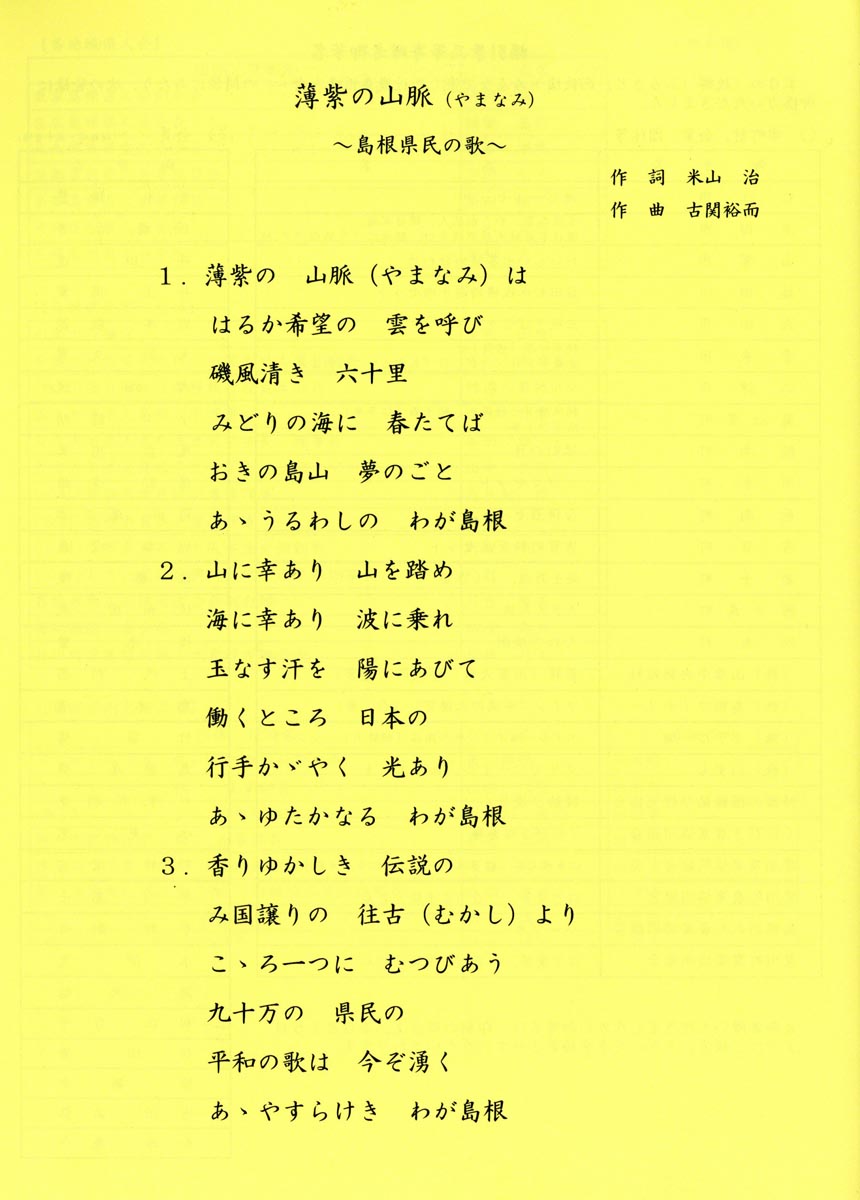 薄紫の山脈（やまなみ）
～島根県民の歌～
作　詞　米山　治
作　曲　古関裕而
１．薄紫の　山脈（やまなみ）は
はるか希望の　雲を呼び
磯風清き　六十里
みどりの海に　春たてば
おきの島山　夢のごと
あゝうるわしの　わが島根
２．山に幸あり　山を踏め
海に幸あり　波に乗れ
玉なす汗を　陽にあびて
働くところ　日本の
行手かゞやく　光あり
あゝゆたかなる　わが島根
３．香りゆかしき　伝説の
み国譲りの　往古（むかし）より
こゝろ一つに　むつびあう
九十万の　県民の
平和の歌は　今ぞ湧く
あゝやすらけき　わが島根